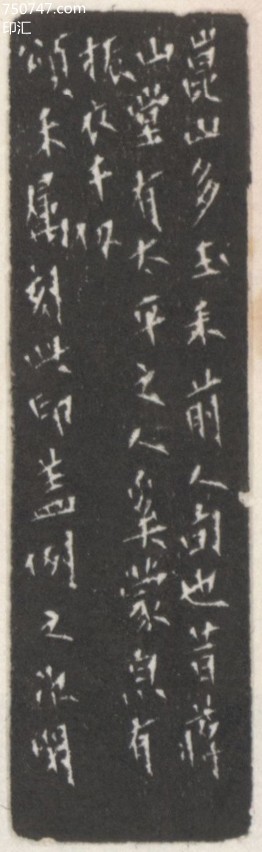 750747.com
印汇
崑山多玉禾前人句也昔蔣
山堂有太平之人奚蒙泉有
振衣千仞
頌禾屬刻此印蓋例之次閑